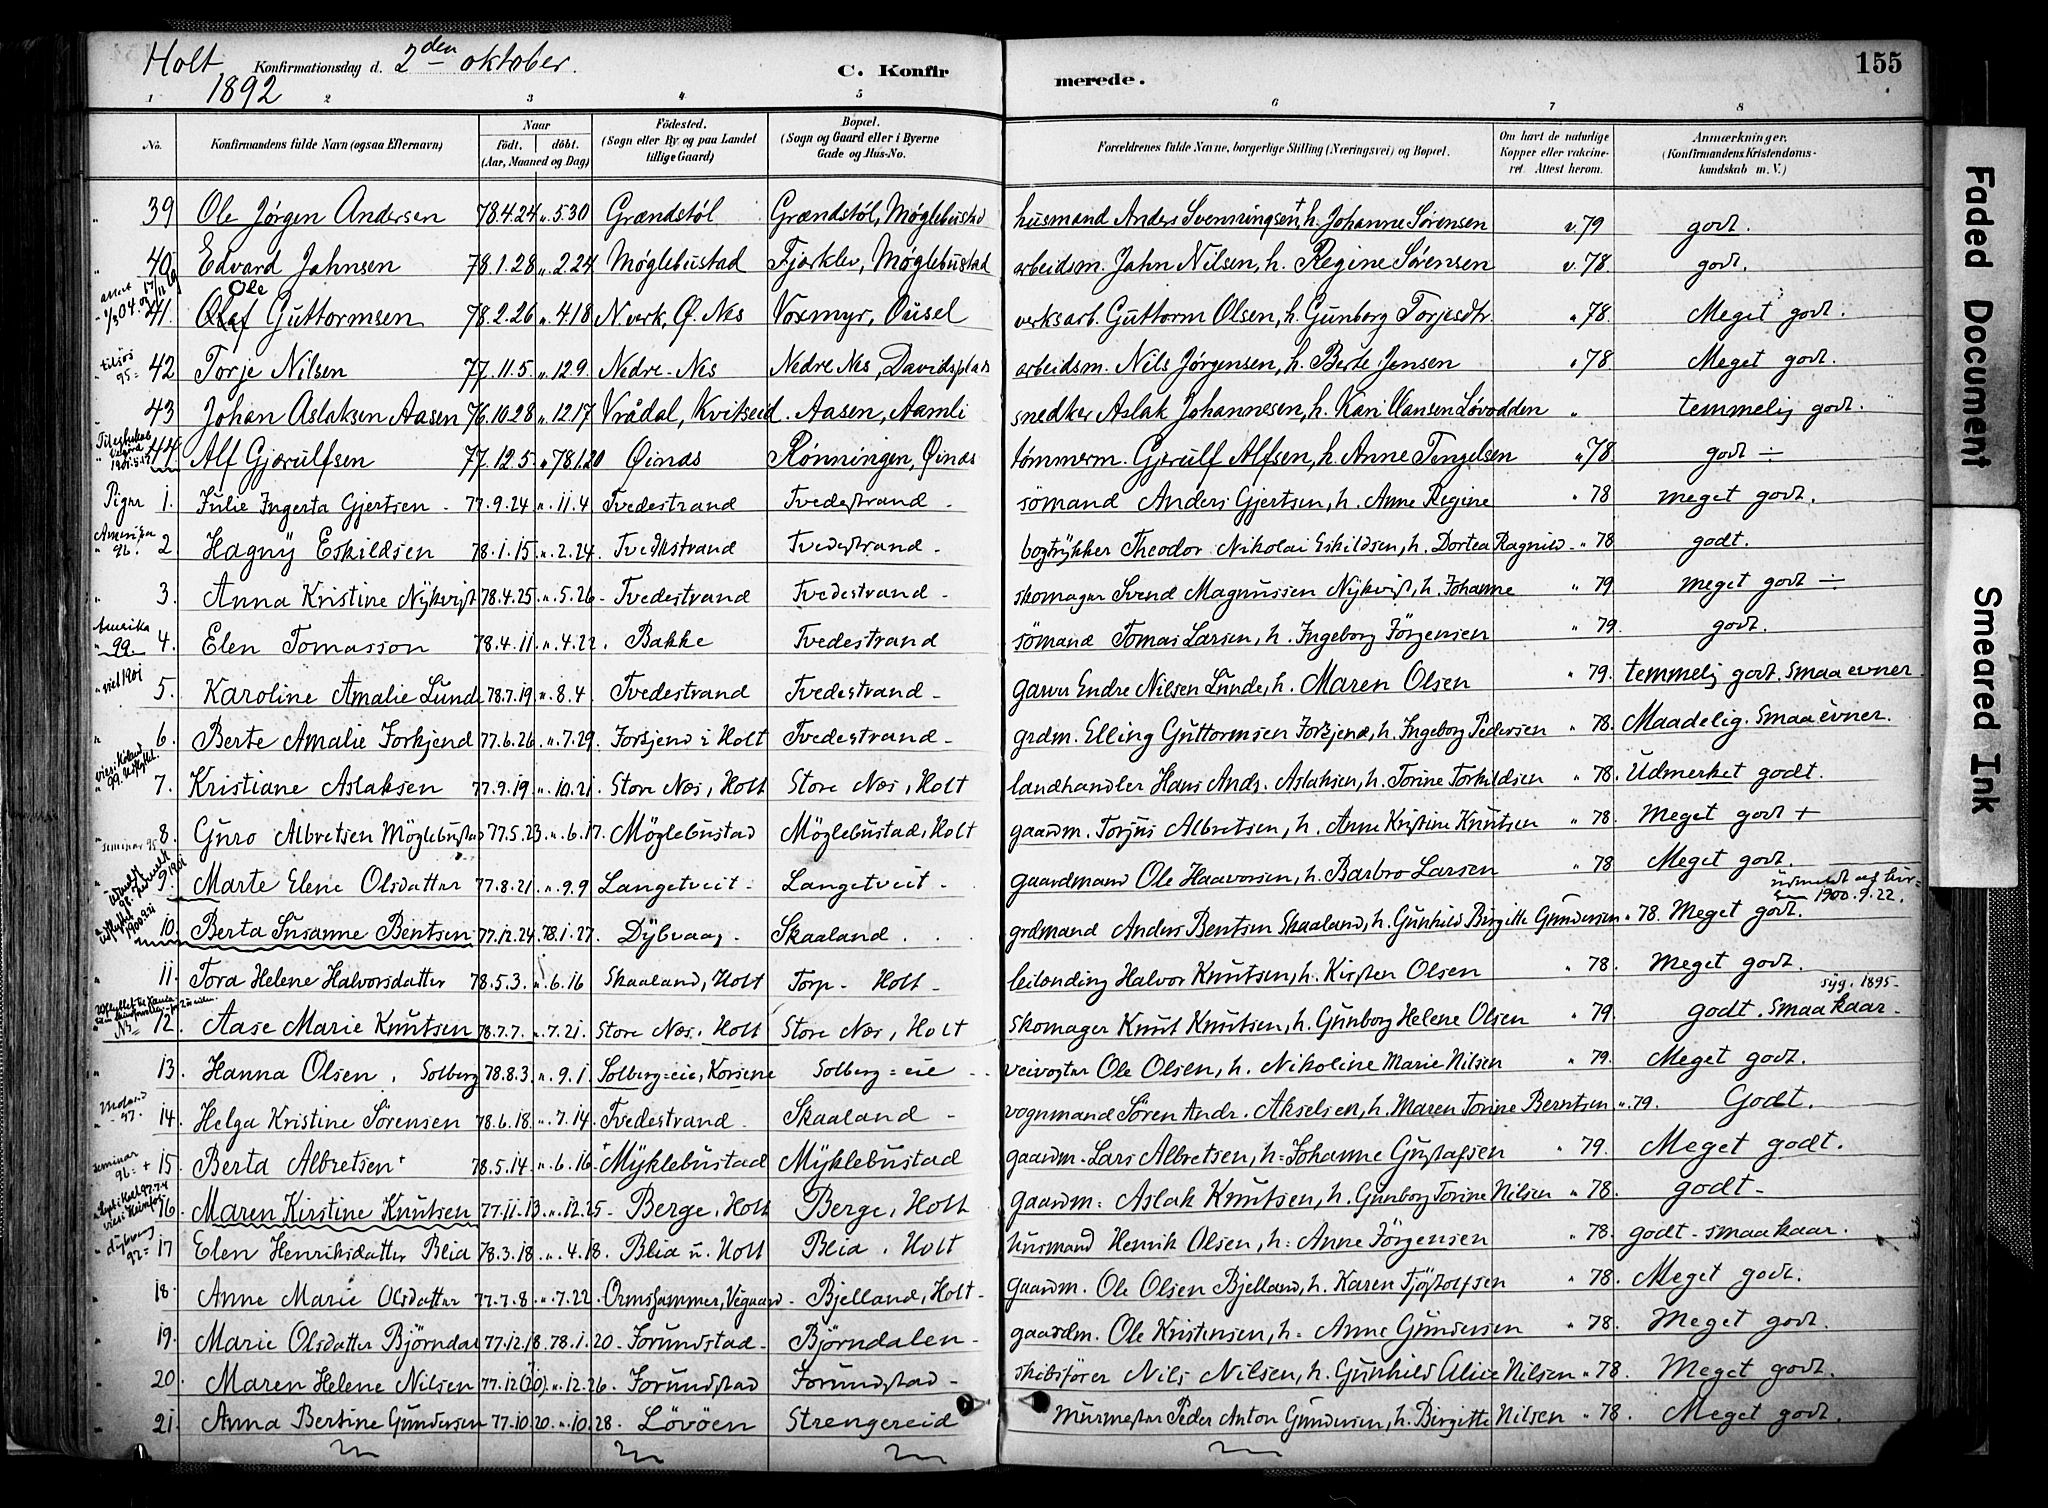 Holt Konfirmationsdag d. 2den oktober. C. Konfirmerede. 155
1892
1 2 3 4 5 6 7 8
No. Konfirmandens fulde Navn (ogsaa Efternavn) Naar født. døbt. (Aar, Maaned og Dag) Fødested. (Sogn eller By og paa Landet tillige Gaard) Bopæl. (Sogn og Gaard eller i Byerne Gade og Hus-No. Forældrenes fulde Navne, borgerlige Stilling (Næringsvei) og Bopæl. Om havt de naturlige Kopper eller vakcineret. Attest herom. Anmærkninger, (Konfirmandens Kristendomskundskab m. V.)
" 39 Ole Jørgen Andersen 78.4.24 „.5.30 Grændstøl Grændstøl, Møglebustad husmand Anders Svenningsen†, h. Johanne Sørensen v. 79 godt.
" 40 Edvard Jahnsen 78.1.28 „.2.24 Møglebustad Fjærklev, Møglebustad arbeidsm. Jahn Nilsen, h. Regine Sørensen v. 78. godt.
41. Ole Guttormsen 78.2.26 „.4.18 N.verk, Ø. Nes Voxmyr, Ousel verksarb. Guttorm Olsen, h. Gunborg Torjesdtr. " 78. Meget godt.
tilsjøs 95= 42 Torje Nilsen 77.11.5 „.12.9. Nedre-Nes Nedre Nes, Davidsplads arbeidsm. Nils Jørgensen, h. Berte Jensen " 78. Meget godt.
43 Johan Aslaksen Aasen 76.10.28 „.12.17 Vrådal, Kvitseid. Aasen, Aamli snedker Aslak Johannesen, h. Kari Hansen Løvodden " temmelig godt.
44 Alf Gjærulfsen 77.12.5 „ 78.1.20 Øinæs Rønningen, Øinæs tømmerm. Gjerulf Alfsen, h. Anne Tengelsen " 78. godt ÷
Piger 1. Julie Ingerta Gjertsen. 77.9.24 „.11.4 Tvedestrand Tvedestrand. sömand Anders Gjertsen, h. Anne Regine " 78 meget godt.
Amerika 96. 2 Hagny Eskildsen 78.1.15 „.2.24 Tvedestrand Tvedestrand. bogtrykker Theodor Nikolai Eskildsen, h. Dortea Ragnild " 78 godt.
" 3. Anna Kristine Nykvist 78.4.25 „.5.26 Tvedestrand Tvedestrand. skomager Svend Magnussen Nykvist, h. Johanne " 79 meget godt ÷
Amerika " 99. 4. Elen Tomasson 78.4.11 „.4.22. Bakke Tvedestrand sömand Tomas Larsen, h. Ingeborg Jörgensen " 79. godt.
" viet 1901 5. Karoline Amalie Lunde 78.7.19 „.8.4 Tvedestrand Tvedestrand. garver Endre Nilsen Lunde, h. Maren Olsen " 79. temmelig godt. smaa evner.
" 6. Berte Amalie Forkjend 77.6.26 „.7.29. Forkjend i Holt Tvedestrand. grdm. Elling Guttormsen Forkjend, h. Ingeborg Pedersen " 78. Maadelig. smaa evner.
7. Kristiane Aslaksen 77.9.19 „.10.21. Store Næs, Holt Store Næs, Holt landhandler Hans Andr. Aslaksen, h. Torine Torkildsen " 78. Udmerket godt.
" seminar 95 8. Guro Albretsen Møglebustad 77.5.23. „.6.17. Møglebustad Møglebustad, Holt gaardm. Torjus Albretsen, h. Anne Kristine Knutsen " 78. Meget godt +
9. Marte Elene Olsdatter 77.8.21 „.9.9 Langetveit. Langetveit. gaardmand Ole Haavorsen, h. Barbro Larsen " 78 Meget godt.
10. Berta Susanne Bentsen 77.12.24 78.1.27. Dybvaag. Skaaland. grdmand Anders Bentsen Skaaland, h. Gunhild Birgitte Gundersen " 78. Meget godt. 1900.9.22.
" 11. Tora Helene Halvorsdatter 78.5.3. „.6.16 Skaaland, Holt Torp. Holt. leilending Halvor Knutsen, h. Kirsten Olsen " 78. Meget godt.
12. Aase Marie Knutsen 78.7.7. „.7.21. Store Næs. Holt Store Næs, Holt skomager Knut Knutsen, h. Gunborg Helene Olsen " 79. godt. smaa kaar. syg. 1895.
" 13. Hanna Olsen, Solberg 78.8.3. „.9.1. Solberg=eie, Korsene Solberg=eie veivogter Ole Olsen, h. Nikoline Marie Nilsen " 79. Meget godt.
97. 14. Helga Kristine Sørensen 78.6.18. „.7.14. Tvedestrand. Skaaland vognmand Sören Andr. Akselsen, h. Maren Torine Berntsen " 79. Godt.
seminar 96= + 15. Berta Albretsen + 78.5.14 „.6.16. Myklebustad Myklebustad gaardm. Lars Albretsen, h= Johanne Gustafsen " 79. Meget godt.
16. Maren Kirstine Knutsen 77.11.13. „.12.25. Berge, Holt Berge, Holt gaardm= Aslak Knutsen, h. Gunborg Torine Nilsen " 78. godt.
" dybvaag 92= 17 Elen Henriksdatter Blia 78.3.18 „.4.18. Blia u. Holt Blia. Holt husmand Henrik Olsen, h= Anne Jörgensen " 78. godt. smaa kaar.
" 18. Anne Marie Olsdatter 77.7.8. „.7.22. Ormshammer, Vegaard. Bjelland, Holt. gaardm. Ole Olsen Bjelland, h. Karen Tjöstolfsen " 78. Meget godt.
" 19. Marie Olsdatter Björndal 77.12.18. 78.1.20. Forundstad. Björndalen. gaardm. Ole Kristensen, h= Anne Gundersen " 78. Meget godt.
" 20. Maren Helene Nilsen „.12.26. Forundstad Forundstad. skibsfører Nils Nilsen, h. Gunhild Alice Nilsen " 78. Meget godt.
" 21. Anna Bertine Gundersen 77.10.20. „.10.28. Lövöen Strengereid Murmester Peder Anton Gundersen, h. Birgitte Nilsen " 78. Meget godt.
Faded Document
Smeared Ink